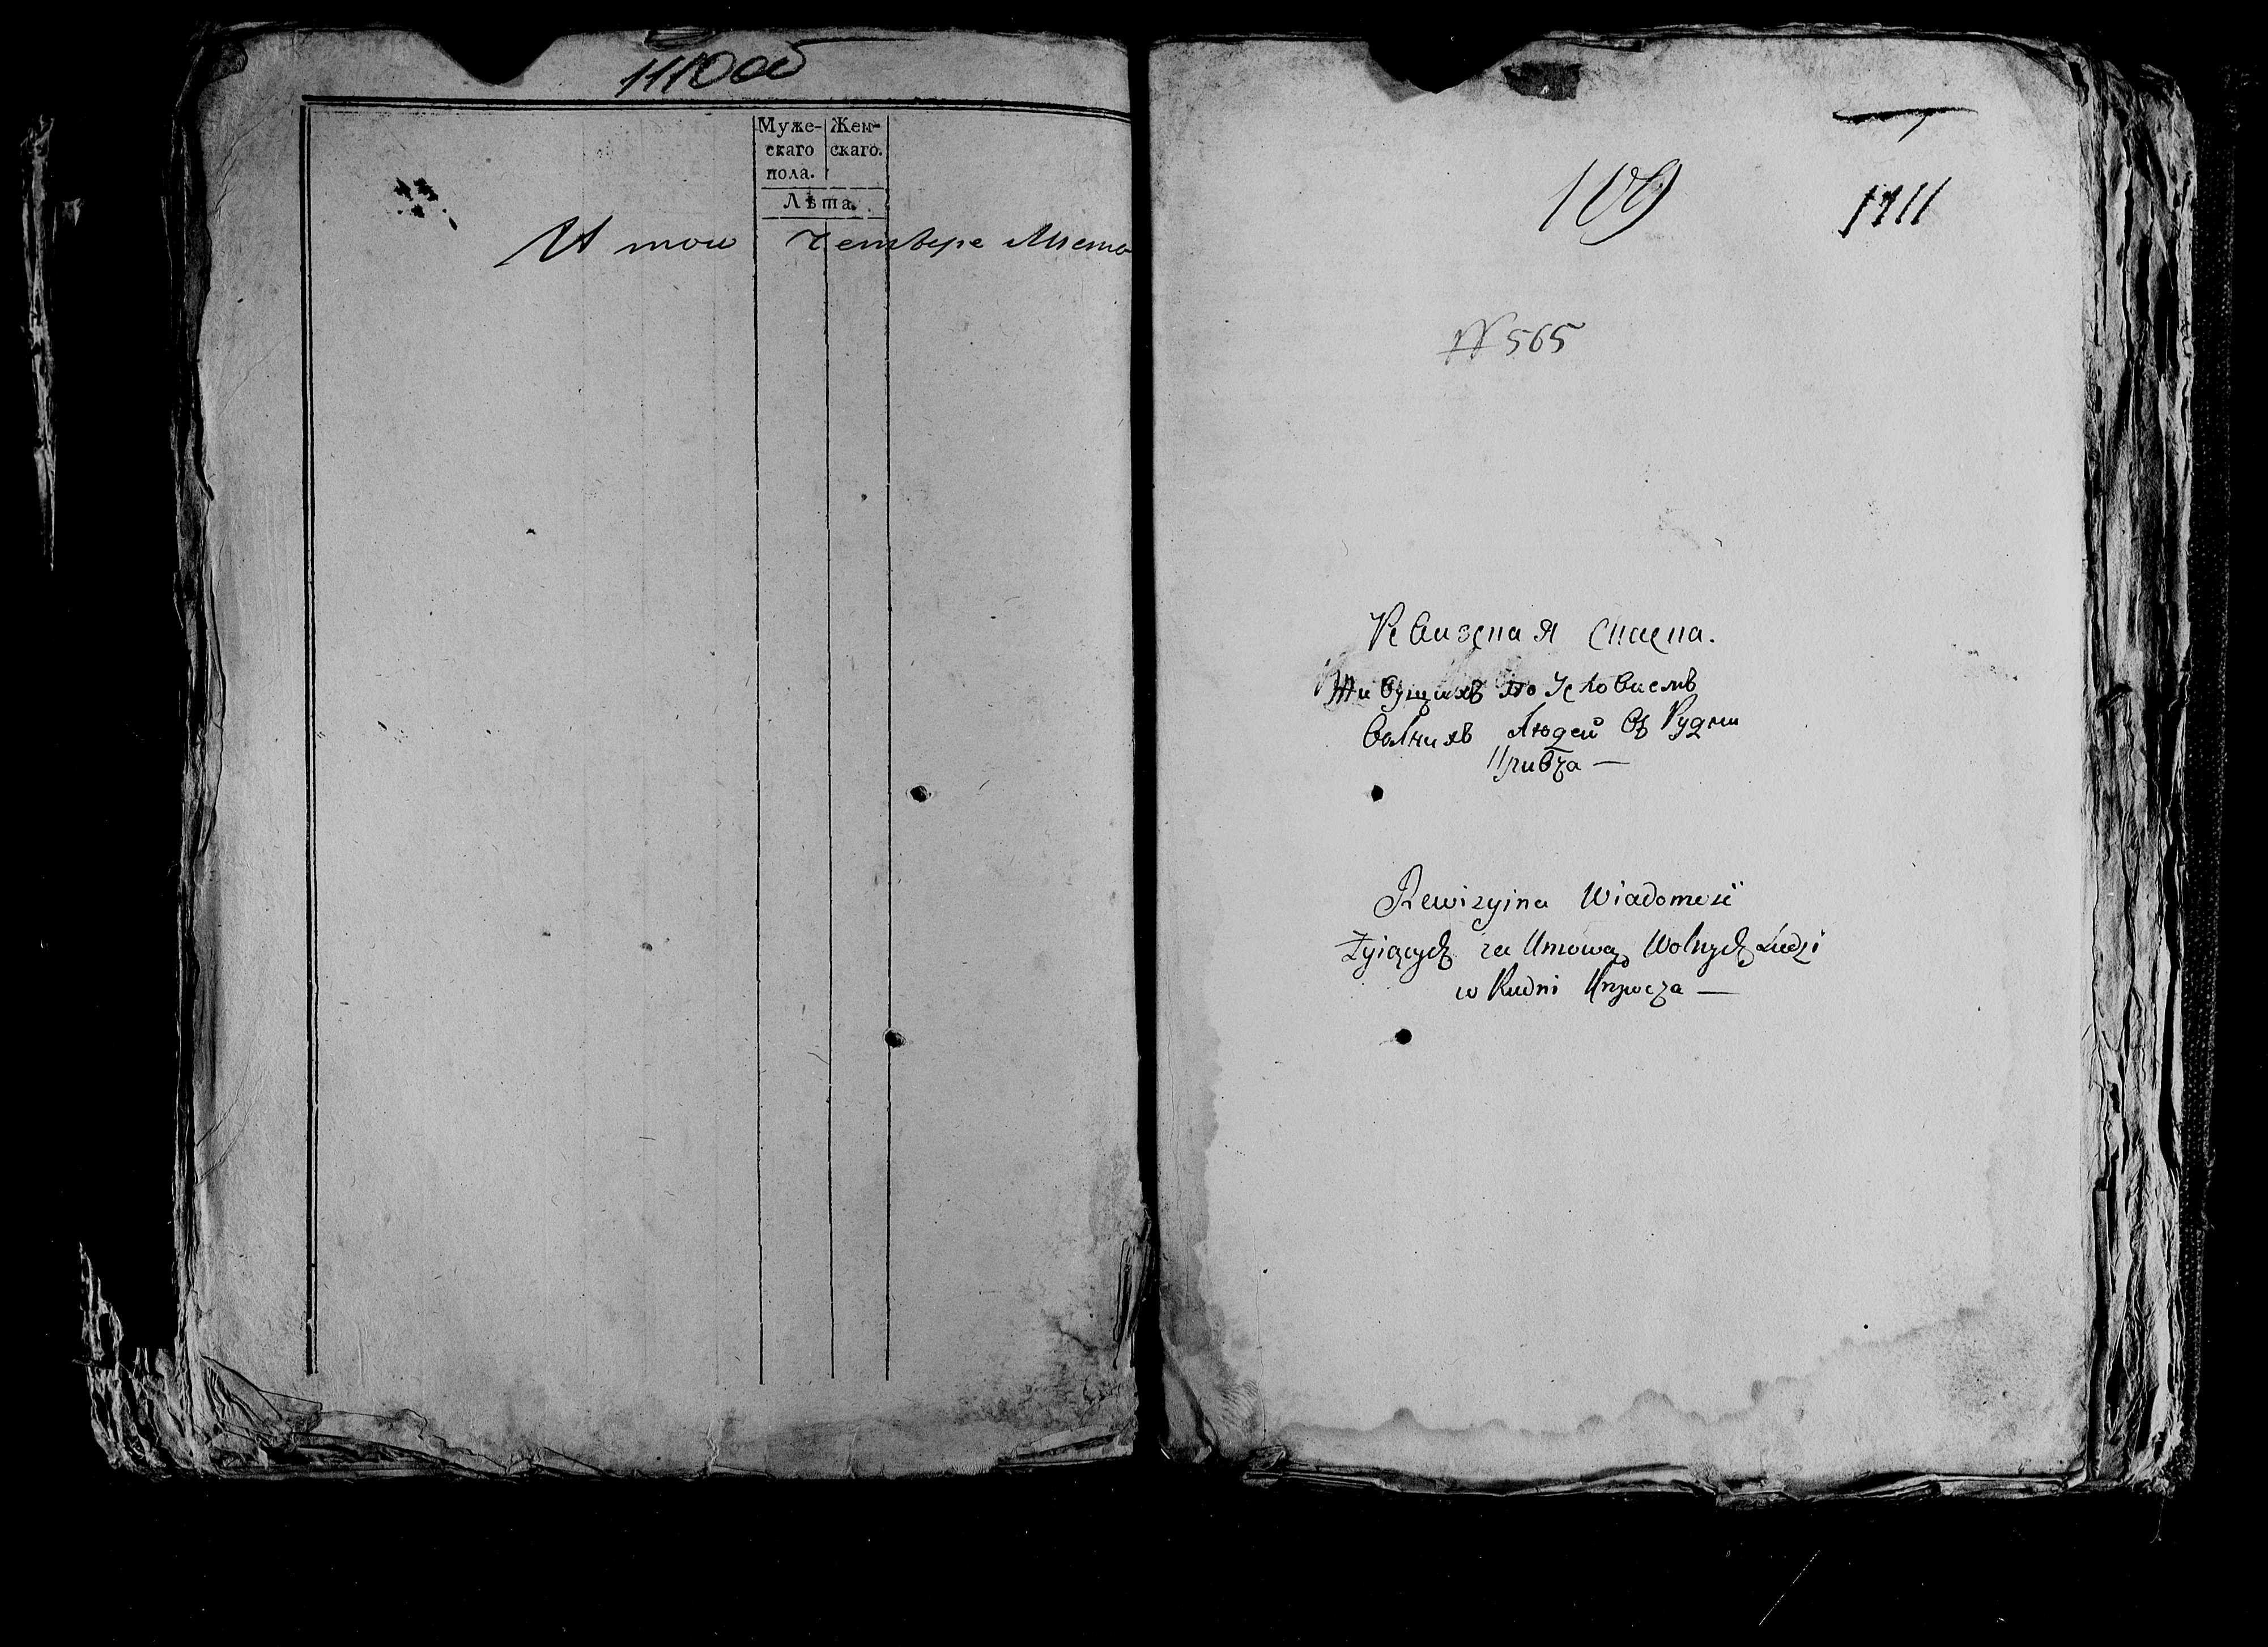 1110об
Муже- Жен-
скаго скаго.
пола.
Лѣта.
И той четвере Листо
109 1111
№ 565
Ревизсная Сказка.
Живущихъ по Условиемъ
Волнихъ Людей Въ Рудни
Кривча —
Rewizyina Wiadomość
Żyiących za Umową Wolnych Ludzi
w Rudni Krzywcza —